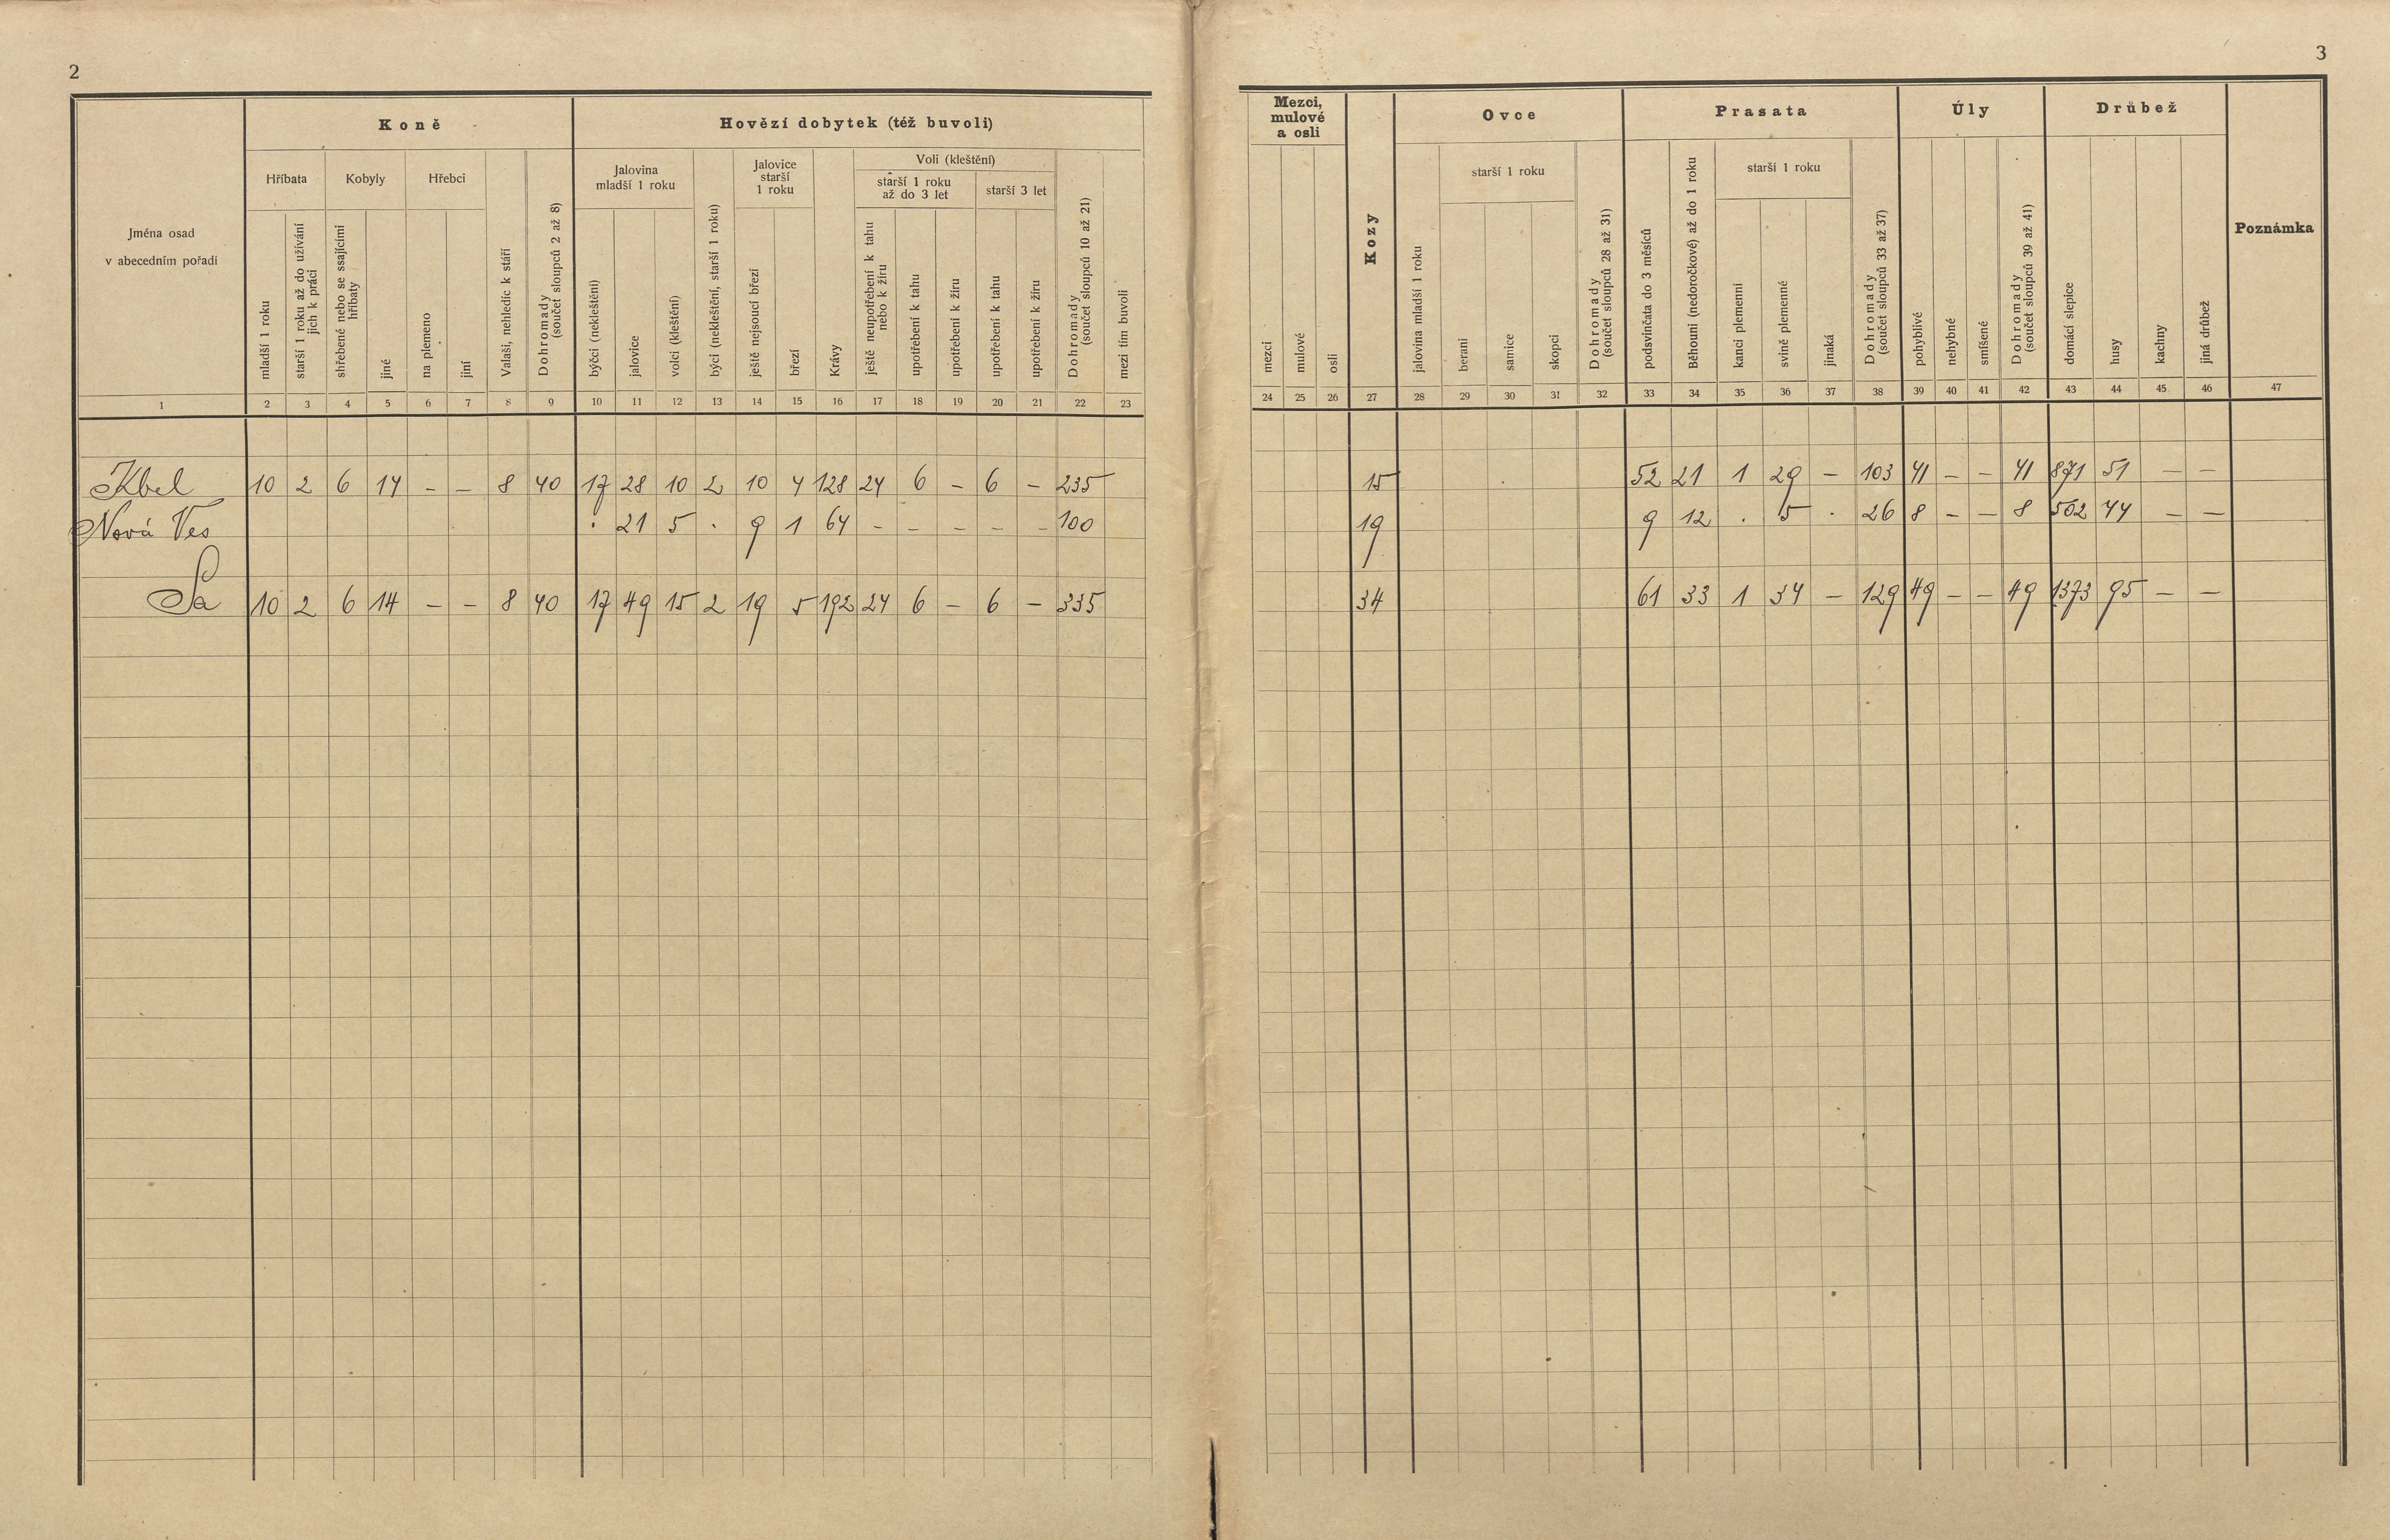 2
3
Jména osad
v abecedním pořadí
Koně
Hříbata
mladší 1 roku
starší 1 roku až do užívání
jich k práci
Kobyly
shřebené nebo se ssajícími
hříbaty
jiné
Hřebci
na plemeno
jiní
Valaši, nehledíc k stáří
Dohromady
(součet sloupců 2 až 8)
Hovězí dobytek (též buvoli)
Jalovina
mladší 1 roku
býčci (nekleštění)
jalovice
volci (kleštění)
býci (nekleštění, starší 1 roku)
Jalovice
starší
1 roku
ještě nejsoucí březí
březí
Krávy
Voli (kleštění)
starší 1 roku
až do 3 let
ještě neupotřebení k tahu
nebo k žíru
upotřebení k tahu
upotřebení k žíru
starší 3 let
upotřebení k tahu
upotřebení k žíru
Dohromady
(součet sloupců 10 až 21)
mezi tím buvoli
Mezci,
mulové
a osli
mezci
mulové
osli
Kozy
Ovce
jalovina mladší 1 roku
starší 1 roku
berani
samice
skopci
Dohromady
(součet sloupců 28 až 31)
Prasata
podsvinčata do 3 měsíců
Běhouni (nedoročkové) až do 1 roku
starší 1 roku
kanci plemenní
svině plemenné
jinaká
Dohromady
(součet sloupců 33 až 37)
Úly
pohyblivé
nehybné
smíšené
Dohromady
(součet sloupců 39 až 41)
Drůbež
domácí slepice
husy
kachny
jiná drůbež
Poznámka
1 2 3 4 5 6 7 8 9 10 11 12 13 14 15 16 17 18 19 20 21 22 23 24 25 26 27 28 29 30 31 32 33 34 35 36 37 38 39 40 41 42 43 44 45 46 47
Kbel 10 2 6 14 – – 8 40 17 28 10 2 10 4 128 24 6 – 6 – 235 15 52 21 1 29 – 103 41 – – 41 871 51 – –
Nová Ves · 21 5 · 9 1 64 – – – – – 100 19 9 12 · 5 · 26 8 – – 8 502 44 – –
Sa 10 2 6 14 – – 8 40 17 49 15 2 19 5 192 24 6 – 6 – 335 34 61 33 1 34 – 129 49 – – 49 1373 95 – –